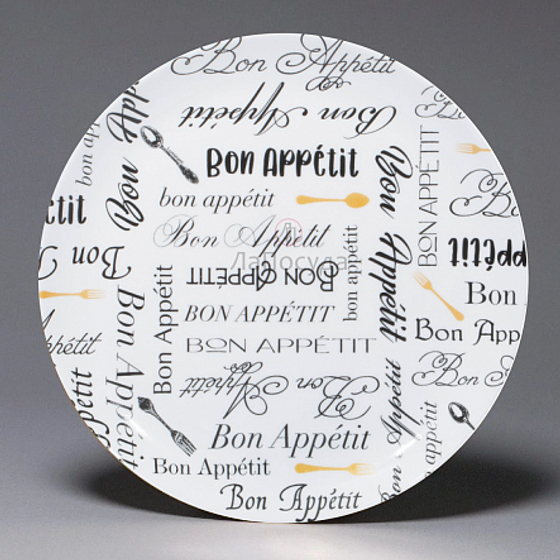 Bon Appétit
Bon Appétit
Bon Appétit
bon appétit
Bon Appétit
ЛаПосуда
BON APPÉTIT
BON APPÉTIT
BON APPÉTIT
Bon Appétit
Bon Appétit
Bon Appétit
Bon Appétit
bon ap
Bon App
étit
Bon
Bon Appétit
Bon Appétit
ppétit
étit
bon appétit
Bon Appétit
Bon Appétit
BON APPÉTIT
Appétit
Bon
Bon App
Bon
appétit